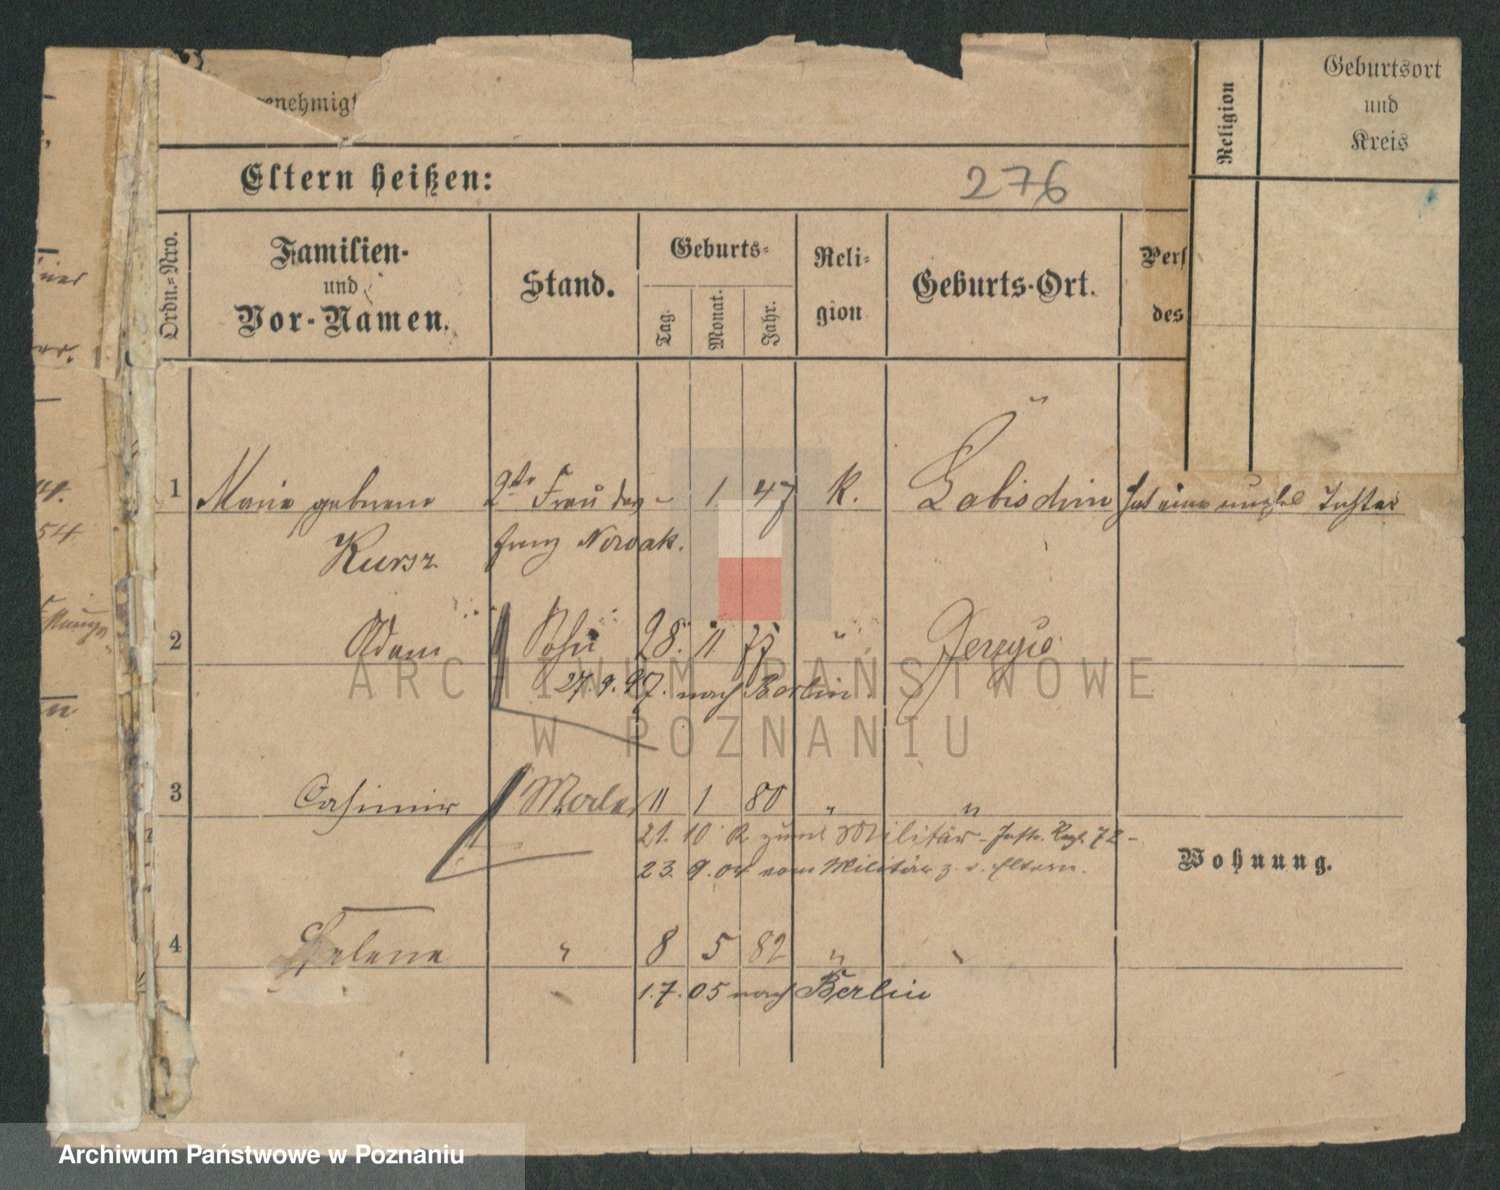 enehmigt
Religion
Geburtsort
und
Kreis
Eltern heißen:
276
Ordn.-Nro.
Familien-
und
Vor-Namen.
Stand.
Geburts-
Tag.
Monat.
Jahr.
Reli-
gion
Geburts-Ort.
Pers
des
1 Marie geborene 2te Frau des - 1 47 K. Labischin hat eine unehel Tochter
Kursz Franz Nowak.
2 Adam Sohn 28. 11 77 " Jerzyce
27.9.97. nach Berlin.
3 Casimir Maler 11 1 80 " "
21. 10 zum Militär - Inftr. Regt. 72 -
23. 9. 04 vom Militär z. d. Eltern.
Wohnung.
4 Helene " 8 5 82 " "
1.7.05 nach Berlin
44.
54
ARCHIWUM PAŃSTWOWE
W POZNANIU
Archiwum Państwowe w Poznaniu